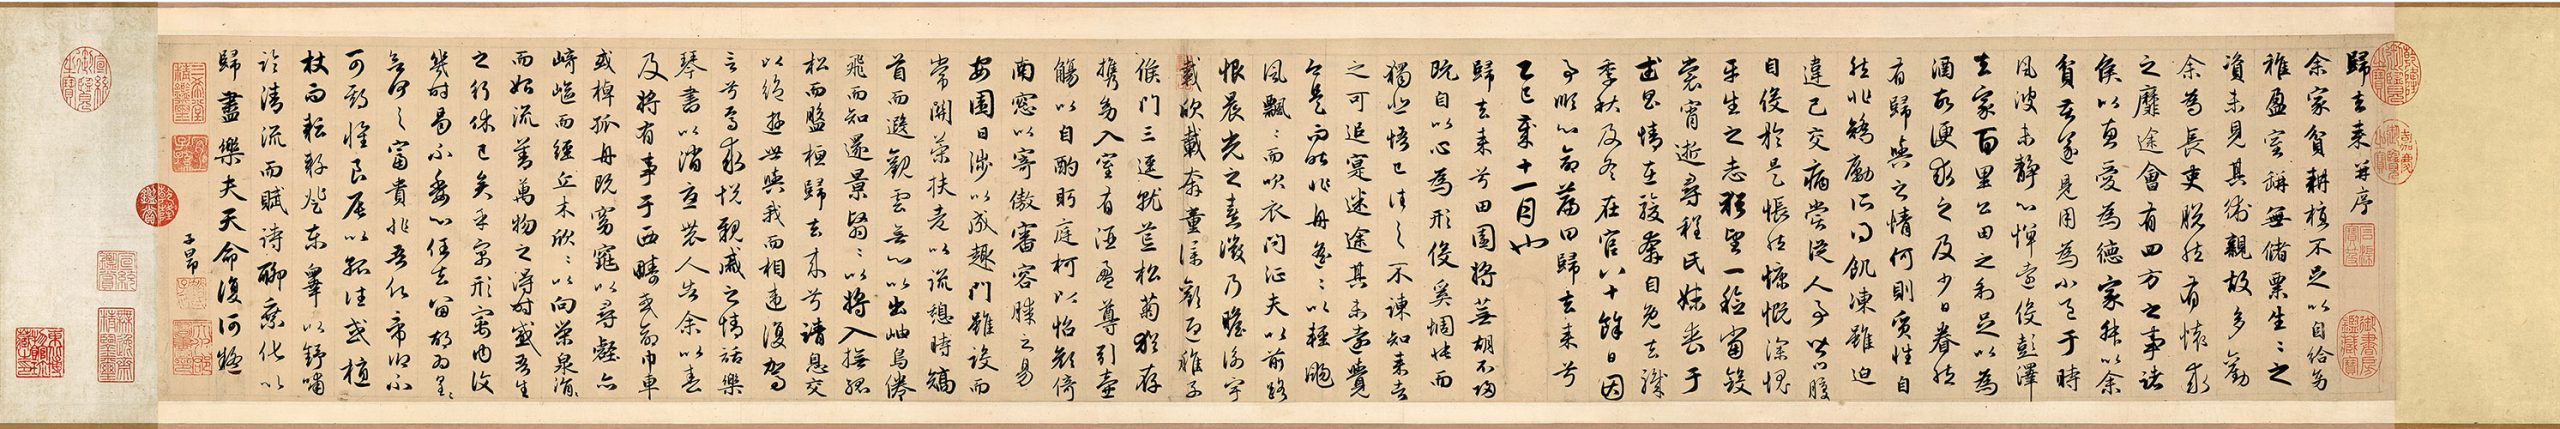 乾隆御覽之寶
嘉慶御覽之寶
石渠寶笈
御書房鑑藏寶
歸去来并序
余家貧耕植不足以自給幼
稚盈室缾無儲粟生〻之
資未見其術親故多勸
余為長吏脱然有懷求
之靡途會有四方之事諸
侯以惠愛為德家叔以余
貧苦遂見用為小邑于時
風波未静心憚遠役彭澤
去家百里公田之利足以為
酒故便求之及少日眷然
有歸與之情何則質性自
然非矯勵所得飢凍雖迫
違己交病嘗從人事皆口腹
自役於是悵然慷慨深愧
平生之志猶望一稔當斂
裳宵逝尋程氏妹喪于
武昌情在駿奔自免去職
季秋及冬在官八十餘日因
事順心命篇曰歸去来兮
乙巳歲十一月也
歸去来兮田園将蕪胡不歸
既自以心為形役奚惆悵而
獨悲悟已往之不諫知来者
之可追寔迷途其未遠覺
今是而昨非舟遥〻以輕颺
風飄〻而吹衣問征夫以前路
恨晨光之熹微乃瞻衡宇
載欣載奔童僕歡迎稚子
候門三逕就荒松菊猶存
携幼入室有酒盈尊引壺
觴以自酌眄庭柯以怡顔倚
南窓以寄傲審容膝之易
安園日涉以成趣門雖設而
常關策扶老以流憩時矯
首而遐觀雲無心以出岫鳥倦
飛而知還景翳〻以将入撫孤
松而盤桓歸去来兮請息交
以絶遊世與我而相違復駕
言兮焉求悦親戚之情話樂
琴書以消憂農人告余以春
及将有事于西疇或命巾車
或棹孤舟既窈窕以尋壑亦
崎嶇而經丘木欣〻以向榮泉涓〻
而始流善萬物之得時感吾生
之行休已矣乎寓形宇内復
幾時曷不委心任去留胡為遑〻
何之富貴非吾願帝鄉不
可期懷良辰以孤往或植
杖而耘耔登東皋以舒嘯
臨清流而賦詩聊乘化以
歸盡樂夫天命復何疑
子昂
三希堂精鑑璽
宜子孫
乾隆鑑賞
宣統御覽之寶
宣統鑑賞
無逸齋精鑑璽